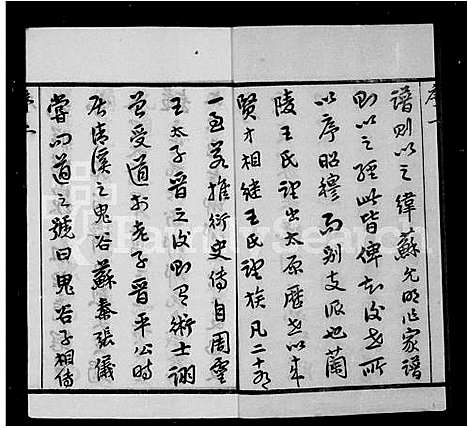 序一
譜則以之緯蘇允明作家譜
則以之經此皆俾知後世所
以序昭穆而別支派也蘭
陵王氏望出太原歷世以來
賢才相繼王氏望族凡二十有
一焉若推衍史傳自周靈
王太子晉之後則有術士詡
曾受道於老子晉平公時
居清溪之鬼谷蘇秦張儀
嘗問道之號曰鬼谷子相傳
序二
FamilySearch